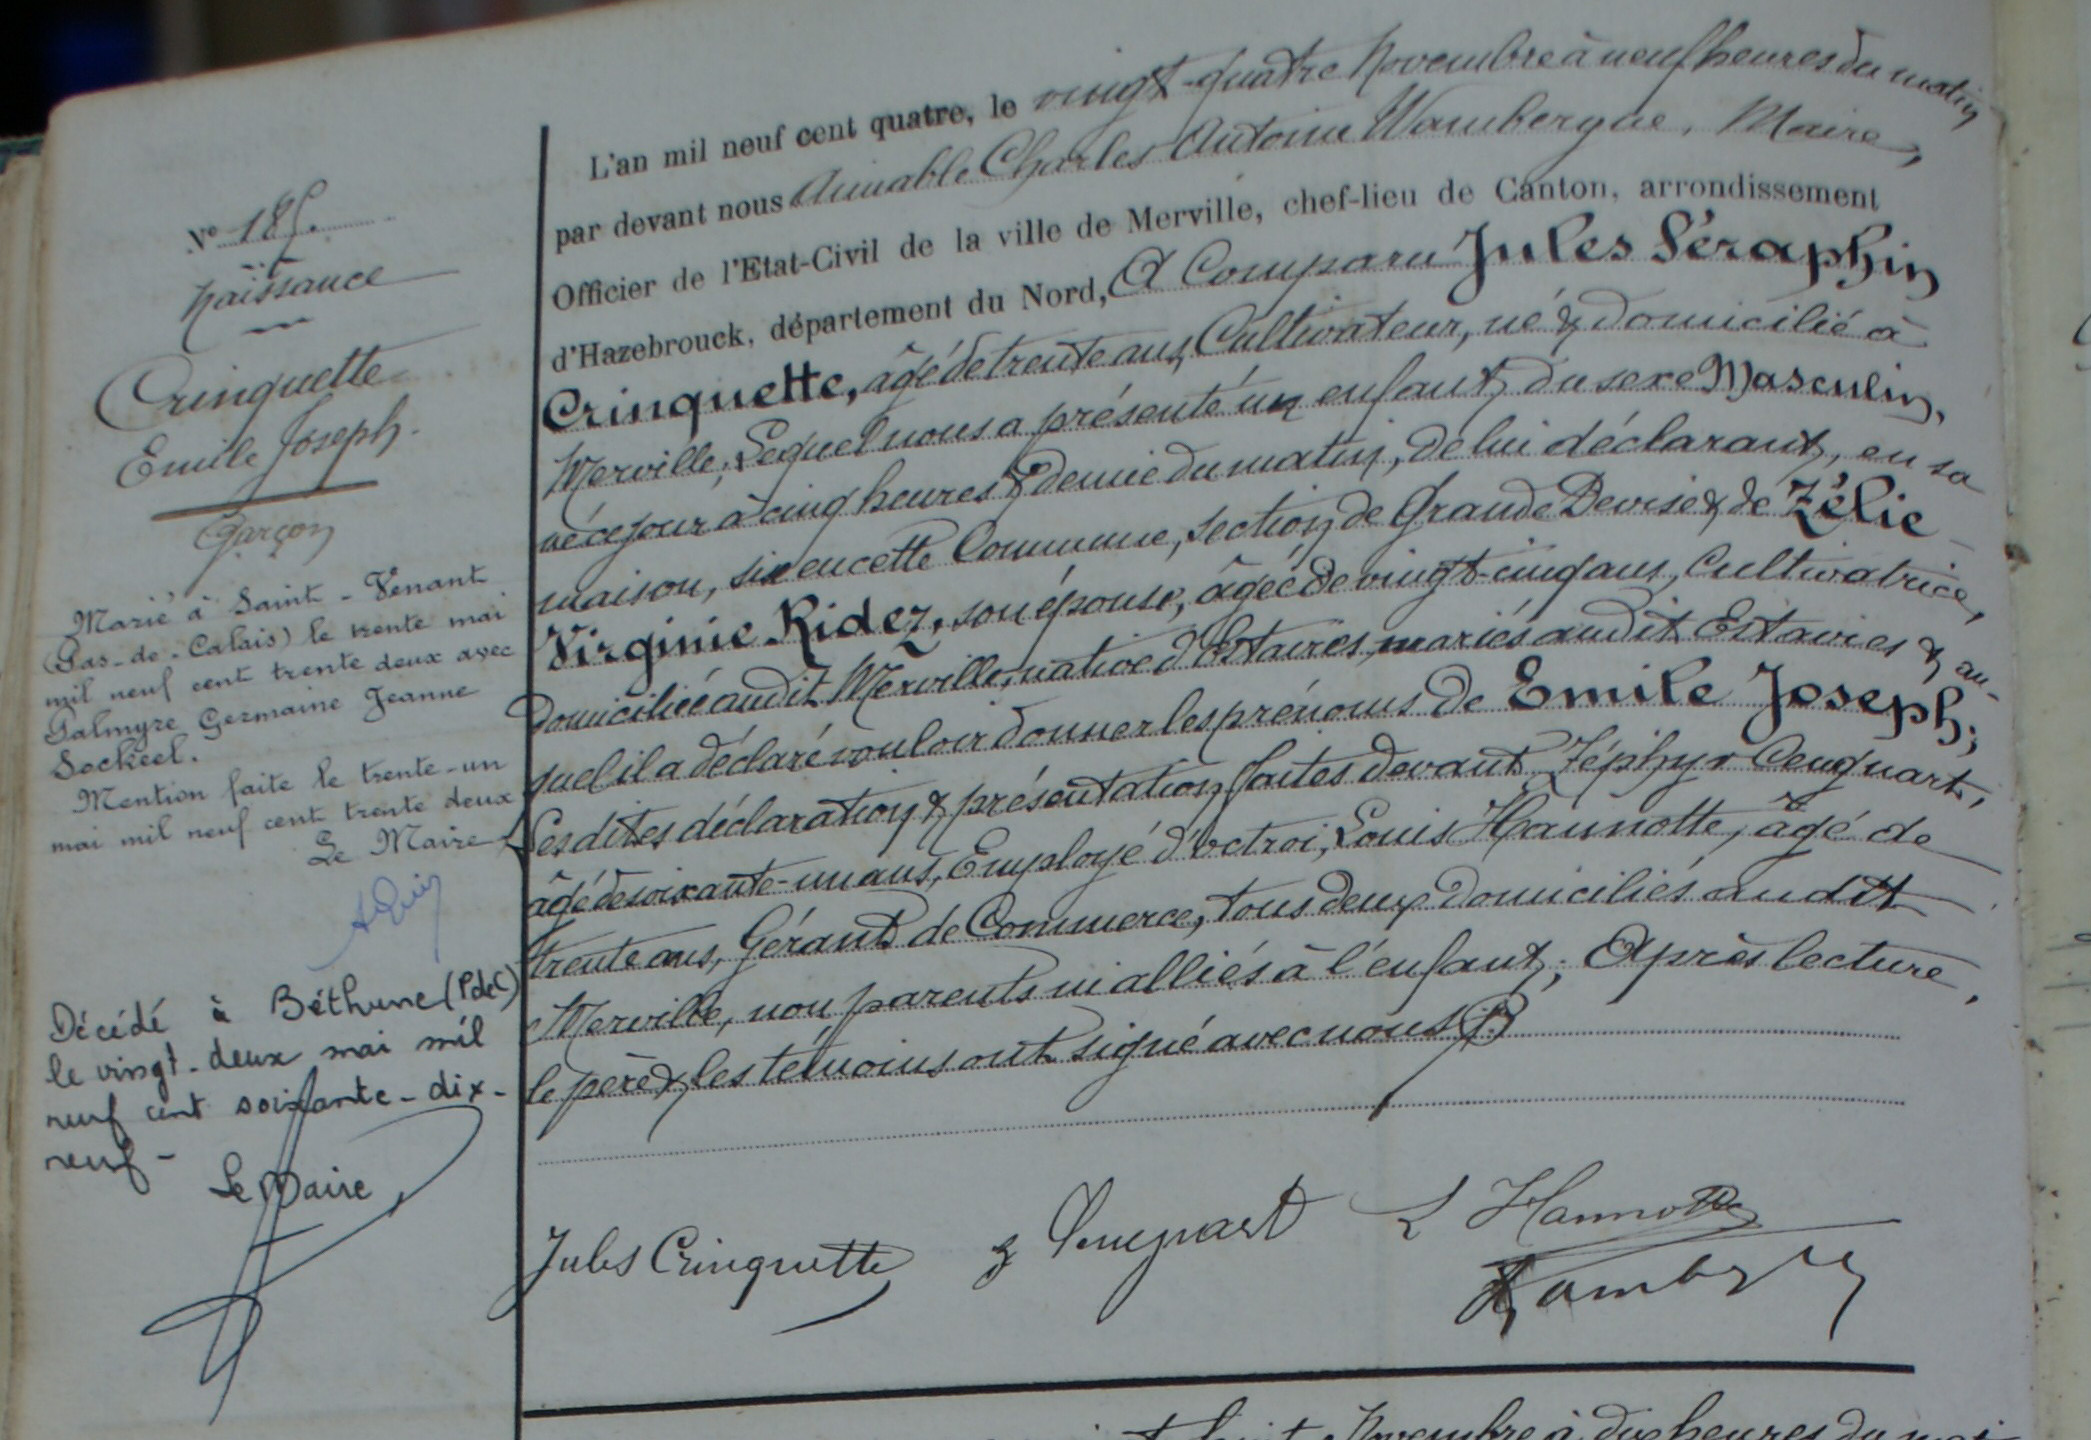 Nº 185.
Naissance
Crinquette
Emile Joseph.
Garçon
Marié à Saint-Venant
(Pas-de-Calais) le trente mai
mil neuf cent trente deux avec
Palmyre Germaine Jeanne
Sockeel.
Mention faite le trente-un
mai mil neuf cent trente deux
Le Maire
Décédé à Béthune (PdeC)
le vingt-deux mai mil
neuf cent soixante-dix-
neuf-
Le Maire
L'an mil neuf cent quatre, le vingt-quatre Novembre à neuf heures du matin
par devant nous Aimable Charles Antoine Wambergue, Maire,
Officier de l'Etat-Civil de la ville de Merville, chef-lieu de Canton, arrondissement
d'Hazebrouck, département du Nord, A Comparu Jules Séraphin
Crinquette, âgé de trente ans, Cultivateur, né & domicilié à
Merville, Lequel nous a présenté un enfant du sexe Masculin,
né ce jour à cinq heures & demie du matin, de lui déclarant, en sa
maison, sise en cette Commune, section de Grande Devise & de Zélie
Virginie Ridez, son épouse, âgée de vingt-cinq ans, Cultivatrice,
domiciliée audit Merville, native d'Estaires, mariés audit Estaires & au-
quel il a déclaré vouloir donner les prénoms de Emile Joseph;
Lesdites déclaration & présentation faites devant Zéphyr Cuquart,
âgé de soixante-un ans, Employé d'octroi, Louis Hannotte, âgé de
trente ans, Gérant de Commerce, tous deux domiciliés audit
Merville, non parents ni alliés à l'enfant; Après lecture,
le père & les témoins ont signé avec nous
Jules Crinquette L Hannotte